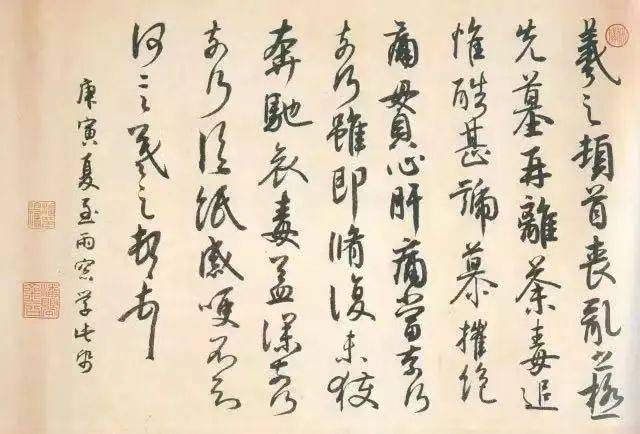 羲之頓首喪亂之極
先墓再離荼毒追
惟酷甚號慕摧絕
痛貫心肝痛當奈何
奈何雖即脩復未獲
奔馳哀毒益深奈何
奈何臨紙感哽不知
何言羲之頓首
庚寅夏至雨窗學書